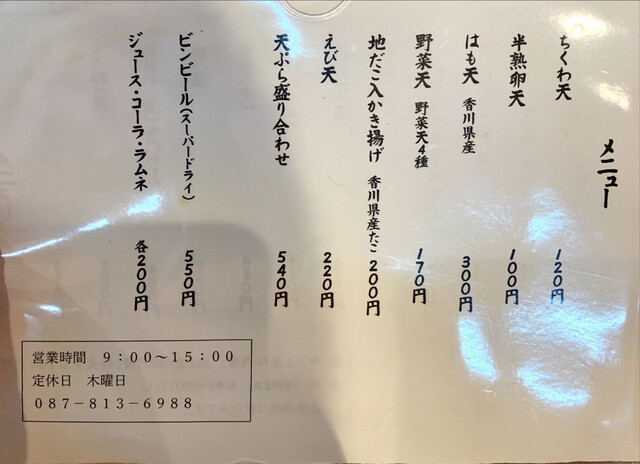 メニュー
ちくわ天 120円
半熟卵天 100円
はも天 香川県産 300円
野菜天 野菜天4種 170円
地だこ入かき揚げ 香川県産たこ 200円
えび天 220円
天ぷら盛り合わせ 540円
ビンビール(スーパードライ) 550円
ジュース・コーラ・ラムネ 各200円
営業時間 9:00~15:00
定休日 木曜日
087-813-6988